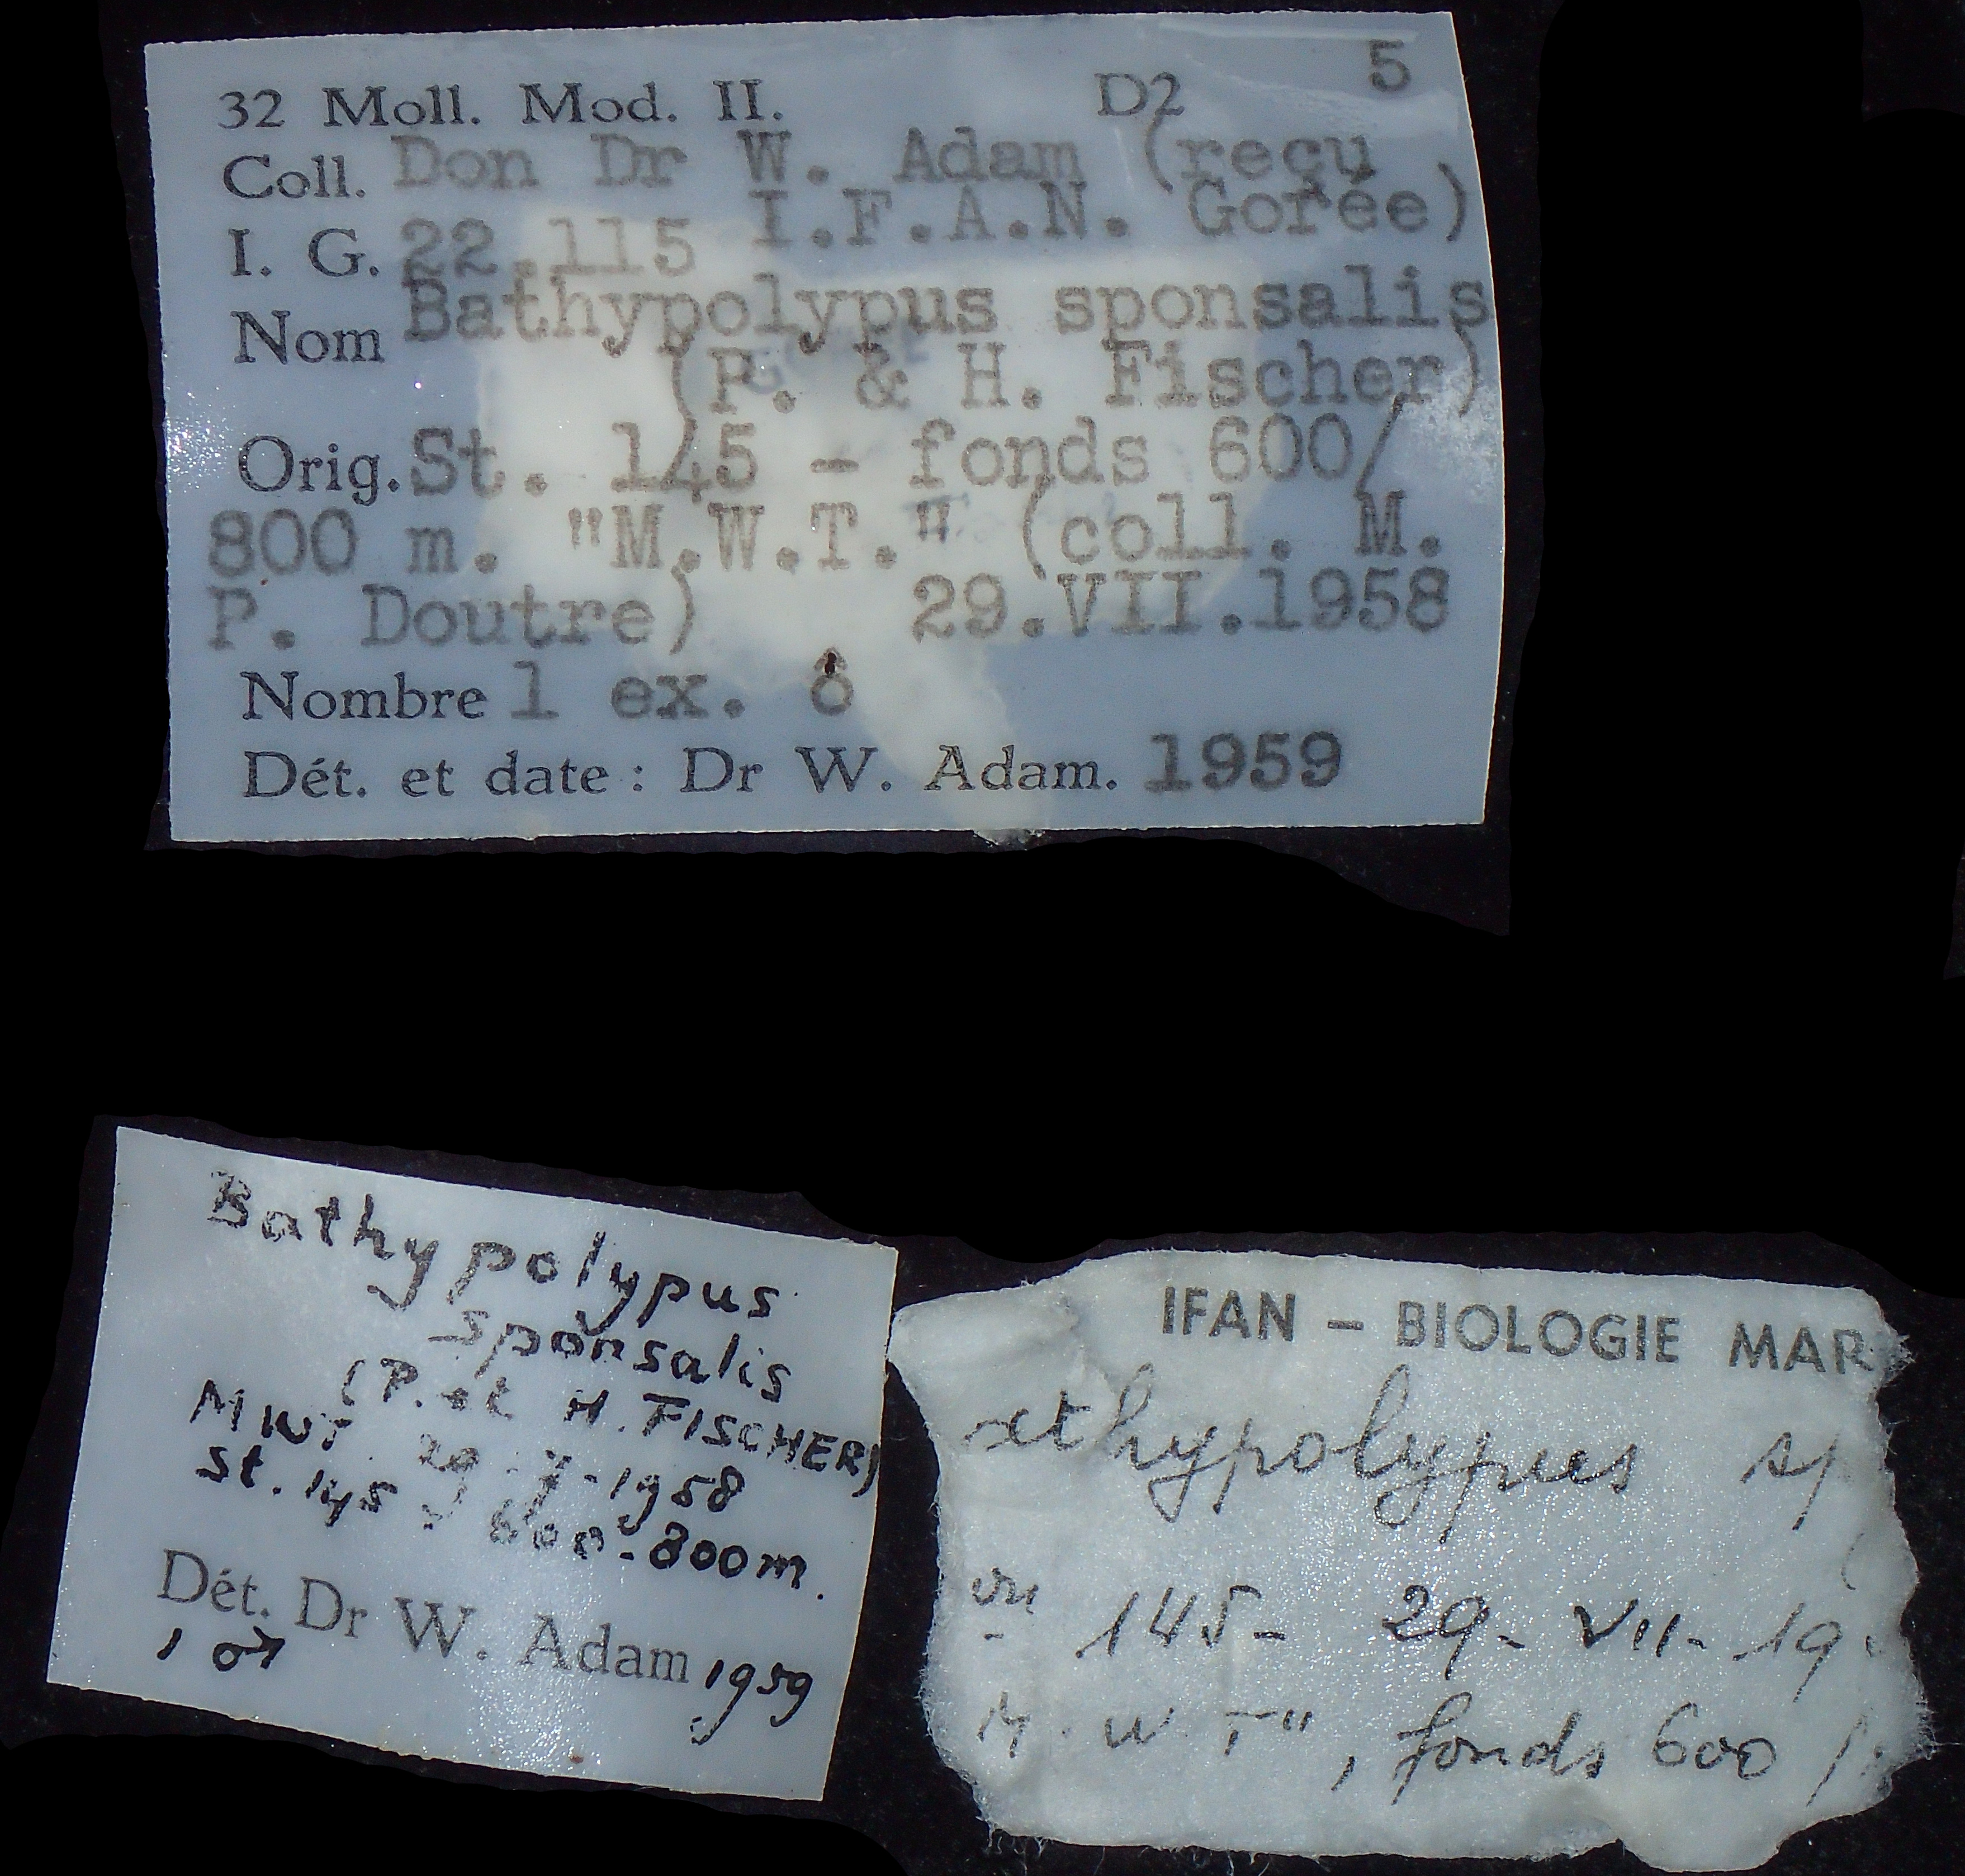 5
32 Moll. Mod. II. D2
Coll. Don Dr W. Adam (reçu
I.F.A.N. Gorée)
I. G. 22.115
Nom Bathypolypus sponsalis
(P. & H. Fischer)
Orig. St. 145 - fonds 600/
800 m. "M.W.T." (coll. M.
P. Doutre) 29.VII.1958
Nombre 1 ex. ♂
Dét. et date : Dr W. Adam. 1959
Bathypolypus
sponsalis
(P. et H. FISCHER)
MWT 29-7-1958
St. 145, 600-800m.
Dét. Dr W. Adam 1959
1 ♂
IFAN – BIOLOGIE MAR
athypolypus sp
on 145- 29- VII- 19
M. W. T", fonds 600 /